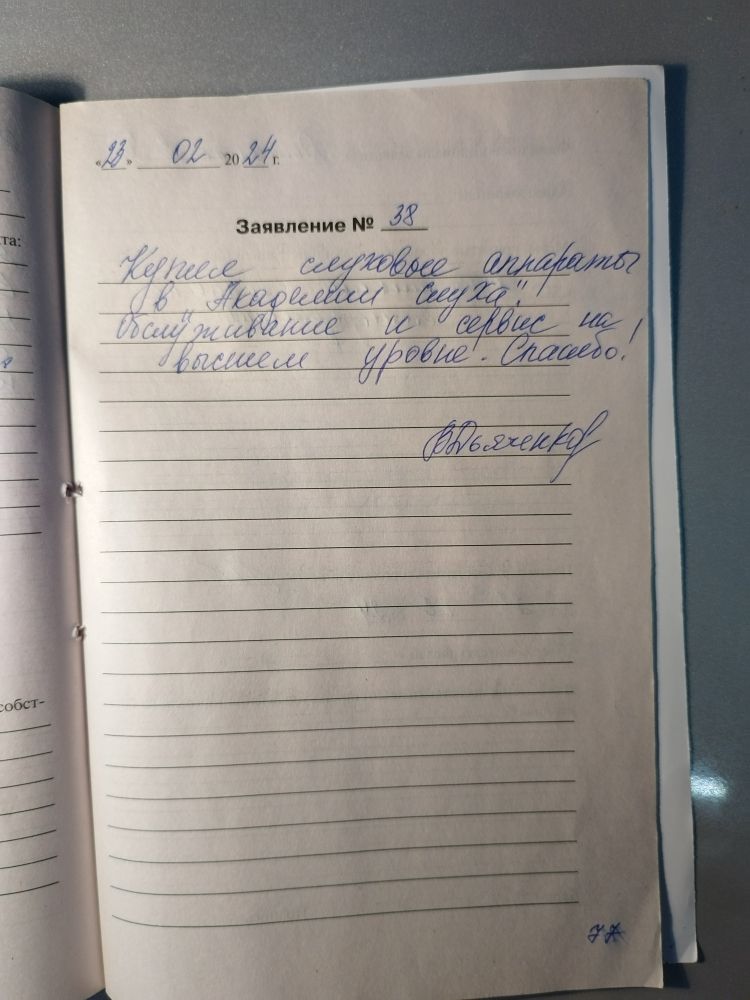 «23» 02 2024 г.
Заявление № 38
Купил слуховые аппараты
в "Академии слуха".
Обслуживание и сервис на
высшем уровне. Спасибо!
ВДьяченко
77
та:
собст-